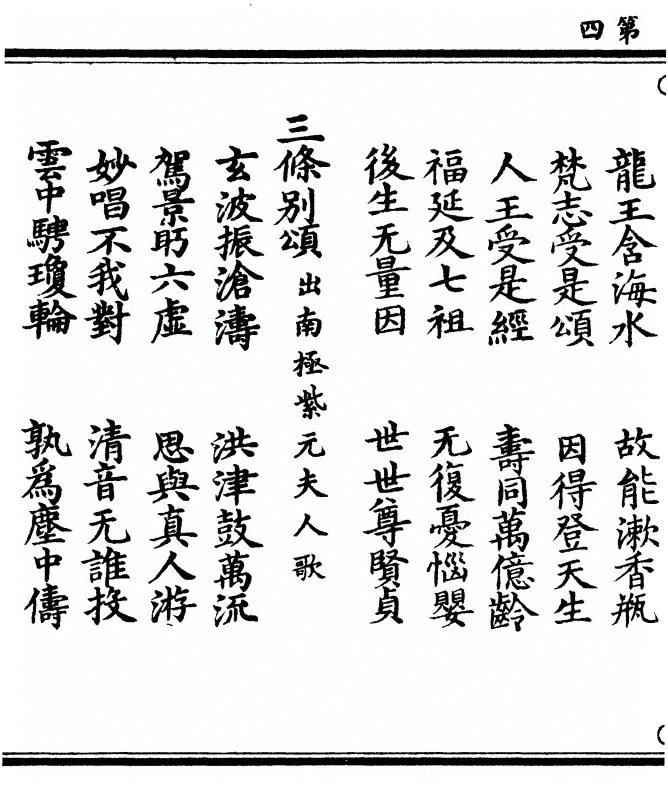 第四
龍王含海水　故能漱香瓶
梵志受是頌　因得登天生
人王受是經　壽同萬億齡
福延及七祖　无復憂惱嬰
後生无量因　世世尊賢貞
三條別頌　出南極紫元夫人歌
玄波振滄濤　洪津鼓萬流
駕景眄六虛　思與真人游
妙唱不我對　清音无誰投
雲中騁瓊輪　孰為塵中儔